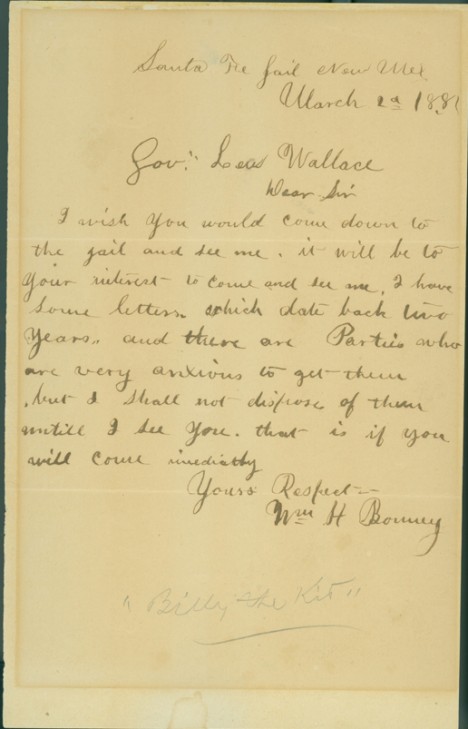 Santa Fe Jail New Mex
March 2d 1881
Gov." Lew Wallace
Dear Sir
I wish you would come down to
the jail and see me. it will be to
your interest to come and see me. I have
some letters which date back two
years, and there are Parties who
are very anxious to get them
but I shall not dispose of them
untill I see you. that is if you
will come imediatly
Yours Respect-
Wm H Bonney
"Billy the Kid"